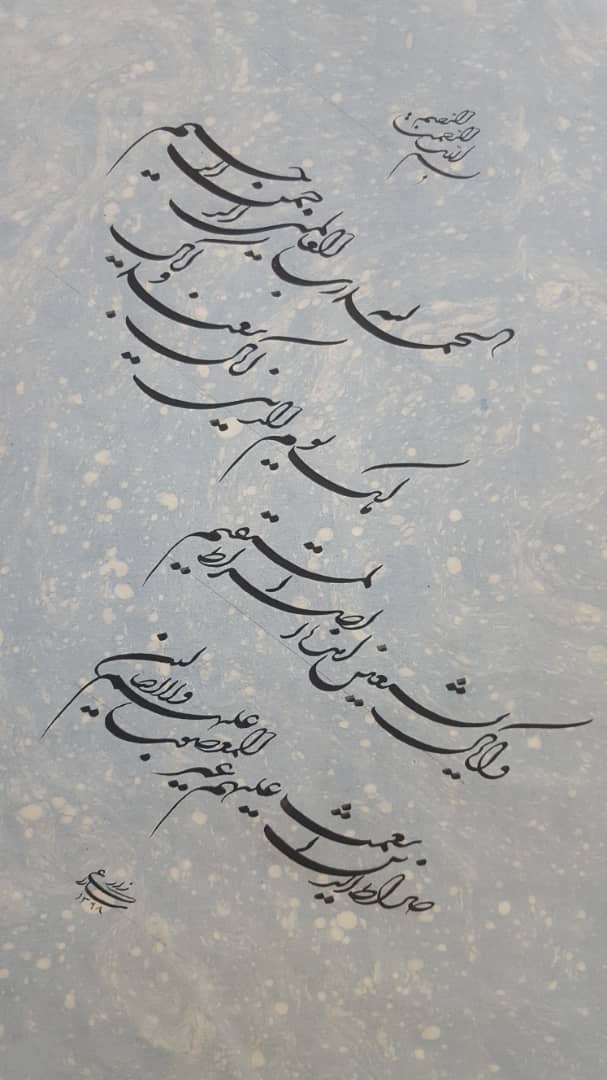 بسم
الله
الرحمن
الرحیم
الحمد لله رب العالمین الرحمن الرحیم
مالک یوم الدین ایاک نعبد و ایاک
نستعین اهدنا الصراط المستقیم
صراط الذین انعمت علیهم غیر المغضوب علیهم ولا الضالین
۱۳۹۸